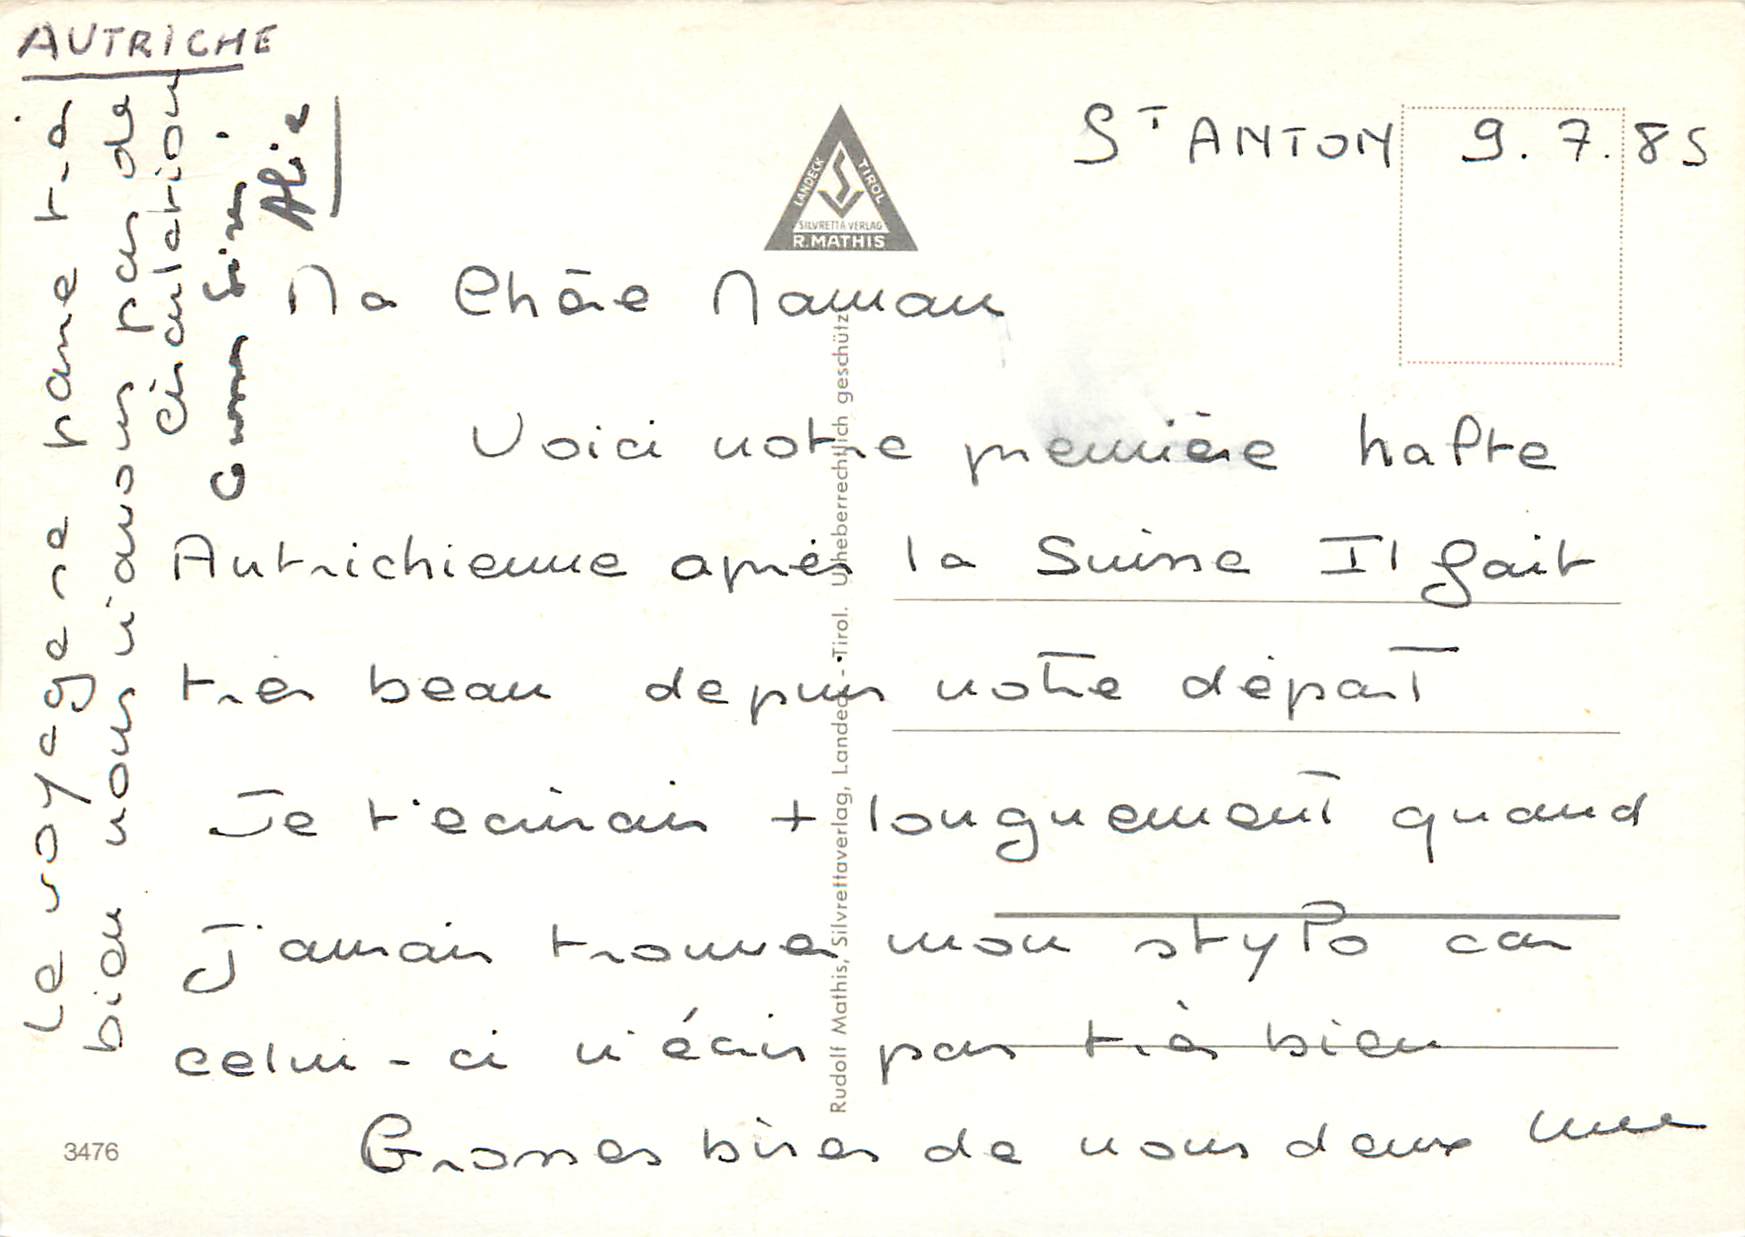 AUTRICHE
S^T ANTON 9.7.85
LANDECK TIROL
SILVRETTA VERLAG
R. MATHIS
Ma Chère Maman
Voici notre première halte
Autrichienne après la Suisse Il fait
très beau depuis notre départ
Je t'ecrirais + longuement quand
J'aurais trouver mon stylo car
celui-ci n'écris pas très bien
Grosses bises de nous deux
Le voyage se passe très
bien nous n'avons pas de
circulation
Grosses bises
Rudolf Mathis, Silvrettaverlag, Landeck - Tirol. Urheberrechtlich geschützt
3476